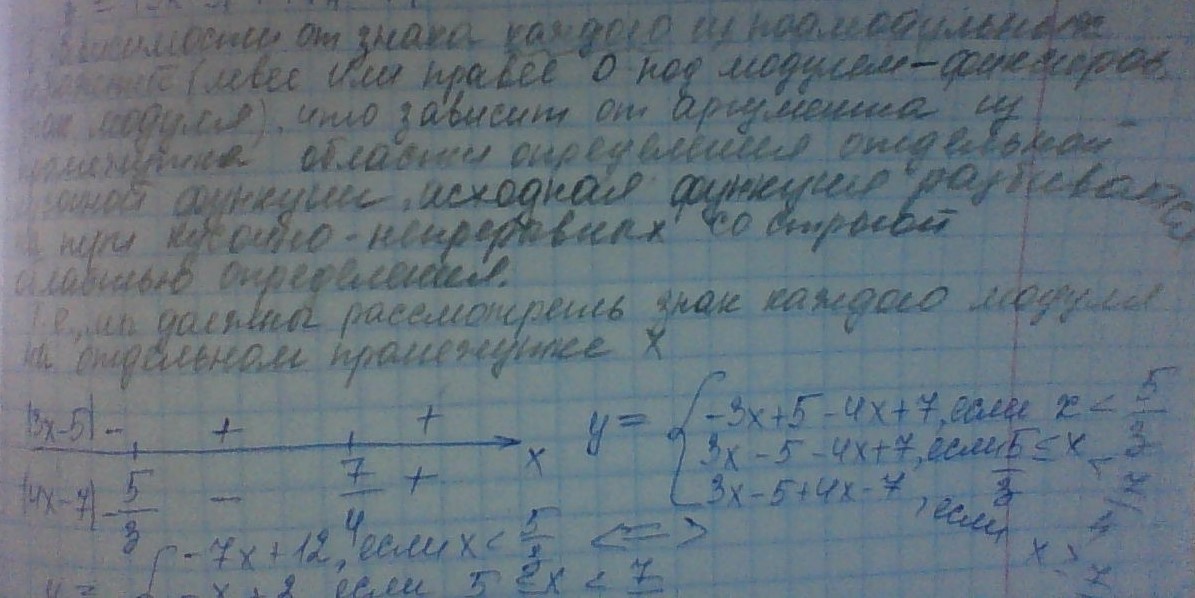 от знака каждого из подмодульных
(левее или правее 0 под модулем - фиксиров.
модуля), что зависит от аргумента из
промежутка области определения отдельной
функции, исходная функция разбивается
на три кусочно-непрерывных со строгой
областью определения.
Т.е., мы должны рассмотреть знак каждого модуля
на отдельном промежутке x
|3x-5| - + + x
|4x-7| - 5/3 - 7/4 +
y = { -3x+5-4x+7, если x < 5/3
3x-5-4x+7, если 5/3 ≤ x < 7/4
3x-5+4x-7, если x ≥ 7
{ -7x+12, если x < 5/3 <=>
y = -x+2 если 5 ≤ x < 7